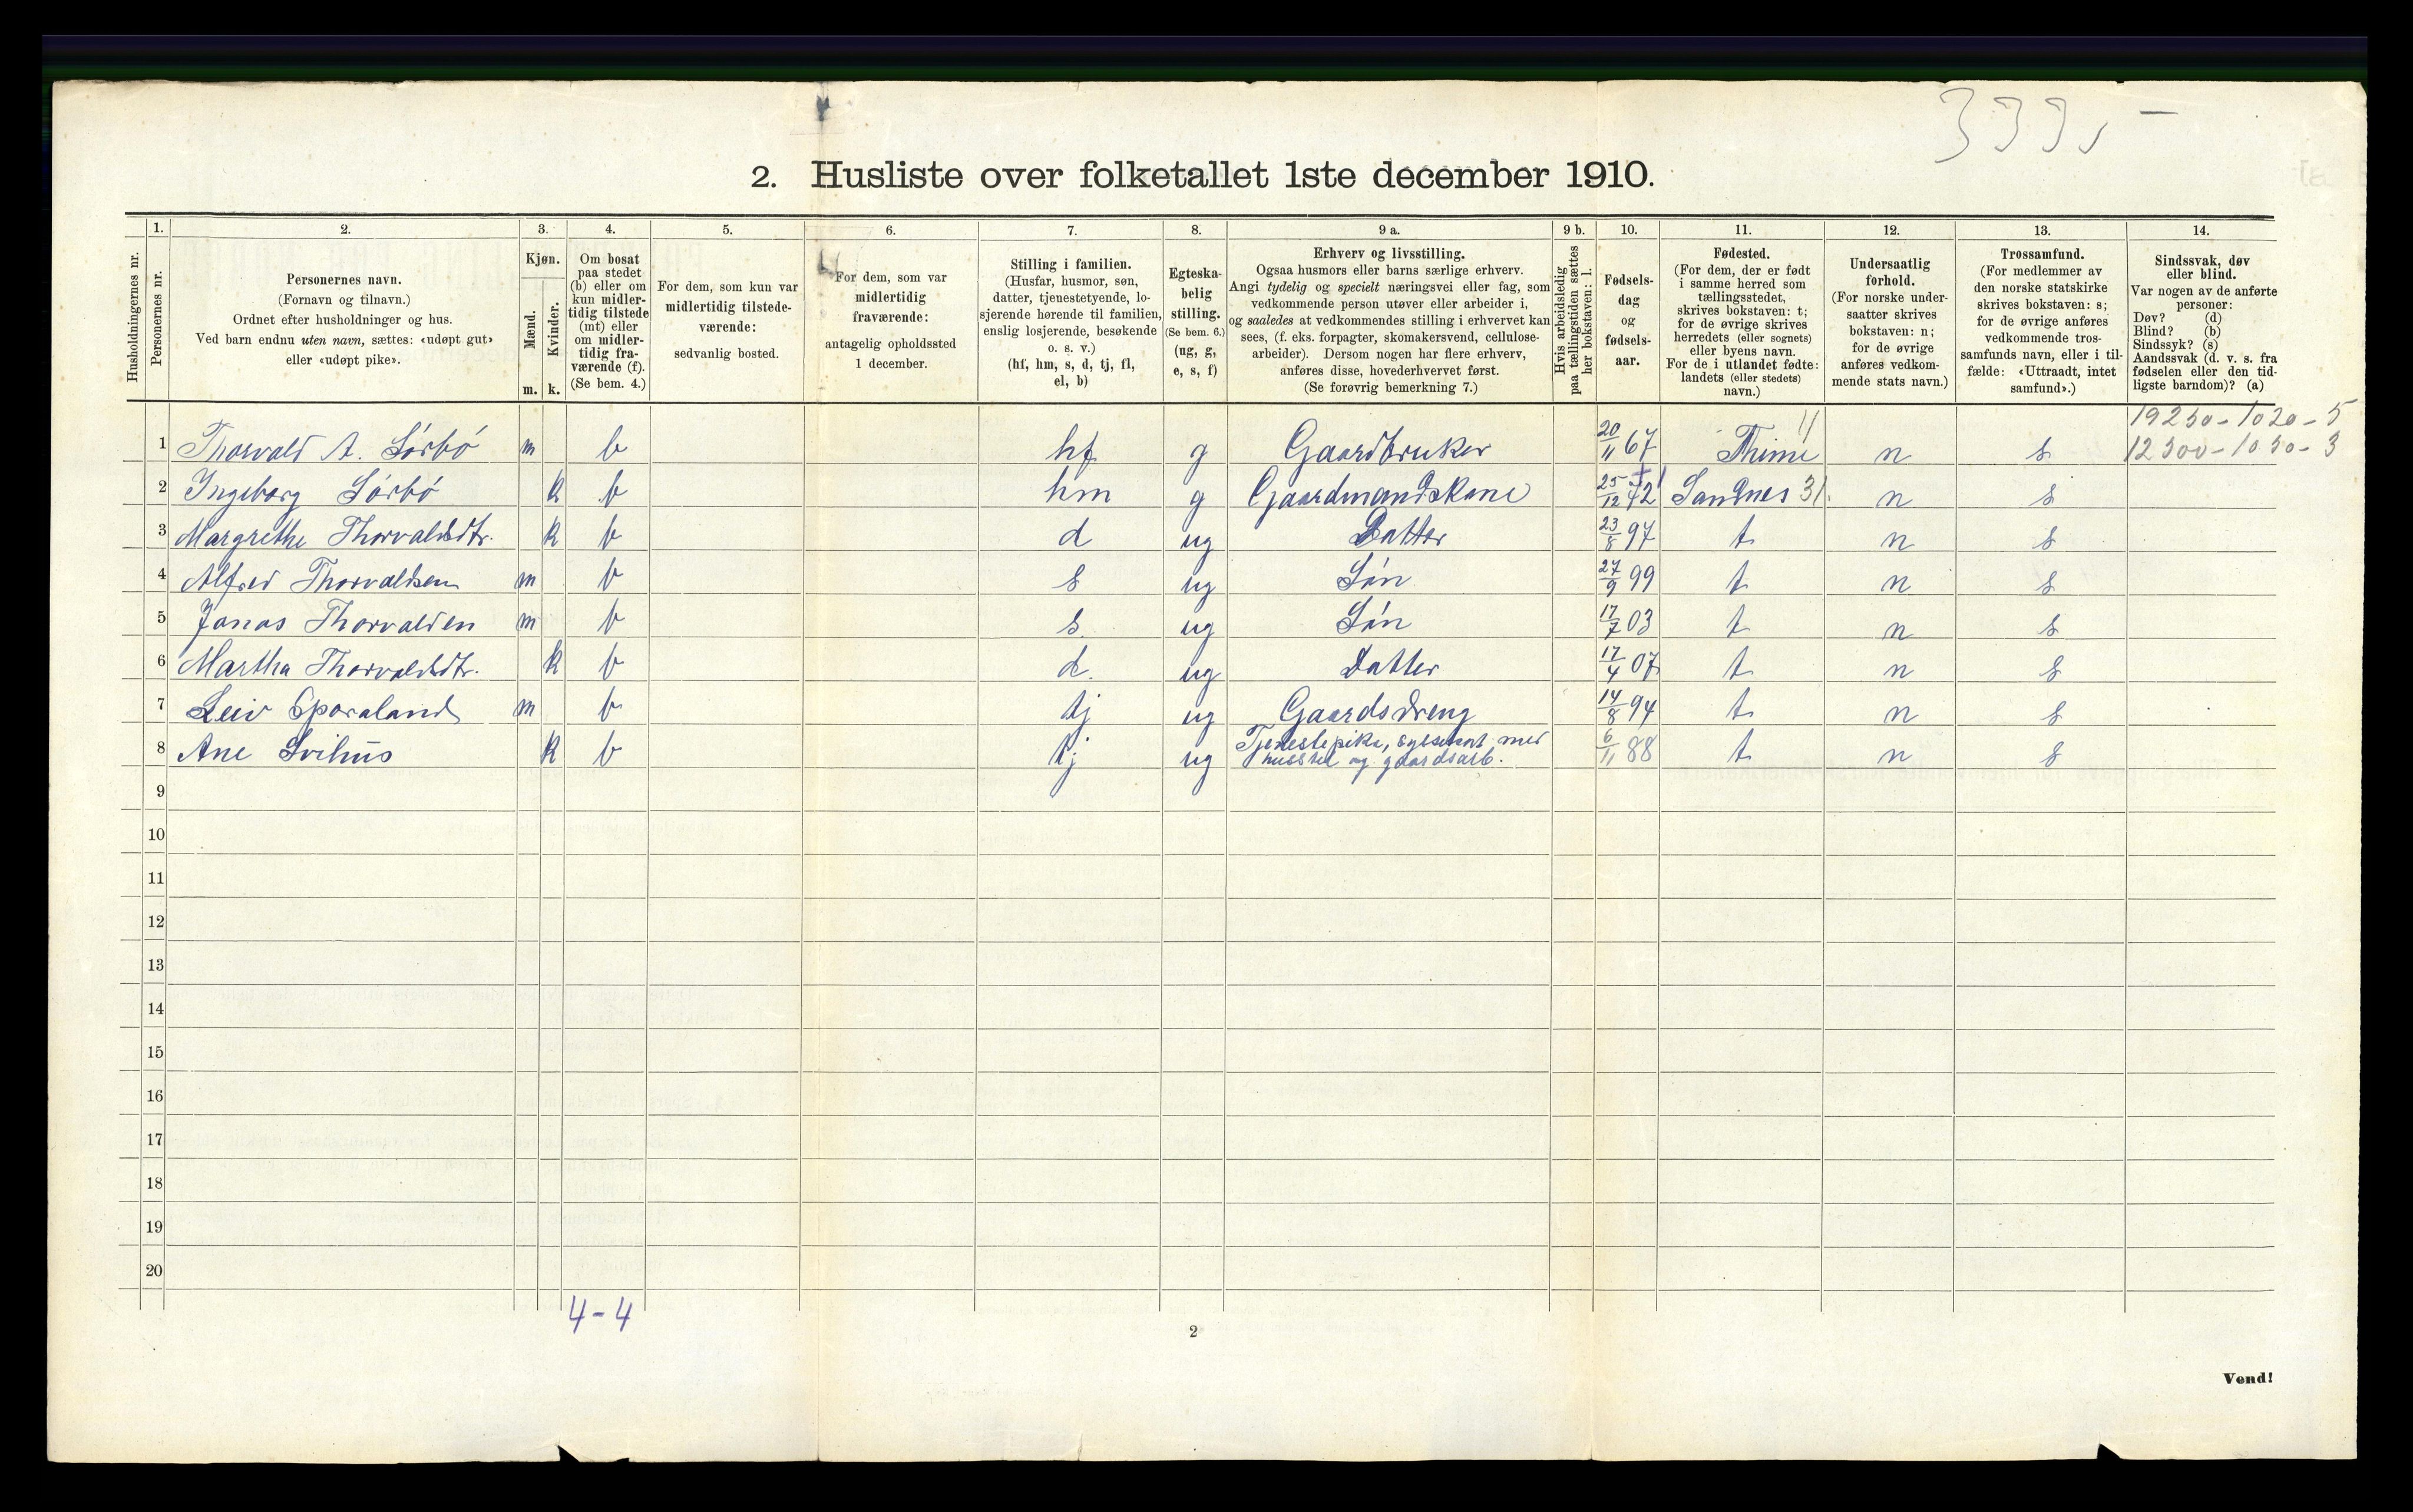 333,-
2. Husliste over folketallet 1ste december 1910.
Husholdningernes nr.
1. Personernes nr.
2. Personernes navn. (Fornavn og tilnavn.) Ordnet efter husholdninger og hus. Ved barn endnu uten navn, sættes: «udøpt gut» eller «udøpt pike».
3. Kjøn. Mænd. m. Kvinder. k.
4. Om bosat paa stedet (b) eller om kun midlertidig tilstede (mt) eller om midlertidig fraværende (f). (Se bem. 4.)
5. For dem, som kun var midlertidig tilstedeværende: sedvanlig bosted.
6. For dem, som var midlertidig fraværende: antagelig opholdssted 1 december.
7. Stilling i familien. (Husfar, husmor, søn, datter, tjenestetyende, losjerende hørende til familien, enslig losjerende, besøkende o. s. v.) (hf, hm, s, d, tj, fl, el, b)
8. Egteskabelig stilling. (Se bem. 6.) (ug, g, e, s, f)
9 a. Erhverv og livsstilling. Ogsaa husmors eller barns særlige erhverv. Angi tydelig og specielt næringsvei eller fag, som vedkommende person utøver eller arbeider i, og saaledes at vedkommendes stilling i erhvervet kan sees, (f. eks. forpagter, skomakersvend, cellulosearbeider). Dersom nogen har flere erhverv, anføres disse, hovederhvervet først. (Se forøvrig bemerkning 7.)
9 b. Hvis arbeidsledig paa tællingstiden sættes her bokstaven: l.
10. Fødselsdag og fødselsaar.
11. Fødested. (For dem, der er født i samme herred som tællingsstedet, skrives bokstaven: t; for de øvrige skrives herredets (eller sognets) eller byens navn. For de i utlandet fødte: landets (eller stedets) navn.)
12. Undersaatlig forhold. (For norske undersaatter skrives bokstaven: n; for de øvrige anføres vedkommende stats navn.)
13. Trossamfund. (For medlemmer av den norske statskirke skrives bokstaven: s; for de øvrige anføres vedkommende trossamfunds navn, eller i tilfælde: «Uttraadt, intet samfund».)
14. Sindssvak, døv eller blind. Var nogen av de anførte personer: Døv? (d) Blind? (b) Sindssyk? (s) Aandssvak (d. v. s. fra fødselen eller den tidligste barndom)? (a)
19250-1020-5
1 Thorvald A. Sørbø m b hf g Gaardbruker 20/11 67 Thime 11 n s 12300-1030-3
2 Ingeborg Sørbø k b hm g Gaardmandskone 25/12 72 Sandnes 31. n s
3 Margrethe Thorvaldsdtr. k b d ug Datter 23/8 97 t n s
4 Alfred Thorvaldsen m b s ug Søn 27/9 99 t n s
5 Jonas Thorvalden m b s. ug Søn 17/7 03 t n s
6 Martha Thorvaldsdtr. k b d. ug Datter 17/4 07 t n s
7 Leiv Sporaland m b tj ug Gaardsdreng 14/8 94 t n s
8 Ane Svihus k b tj ug Tjenestepike, sysselsat med husstel og gaardsarb. 6/11 88 t n s
9
10
11
12
13
14
15
16
17
18
19
20
4-4
2
Vend!